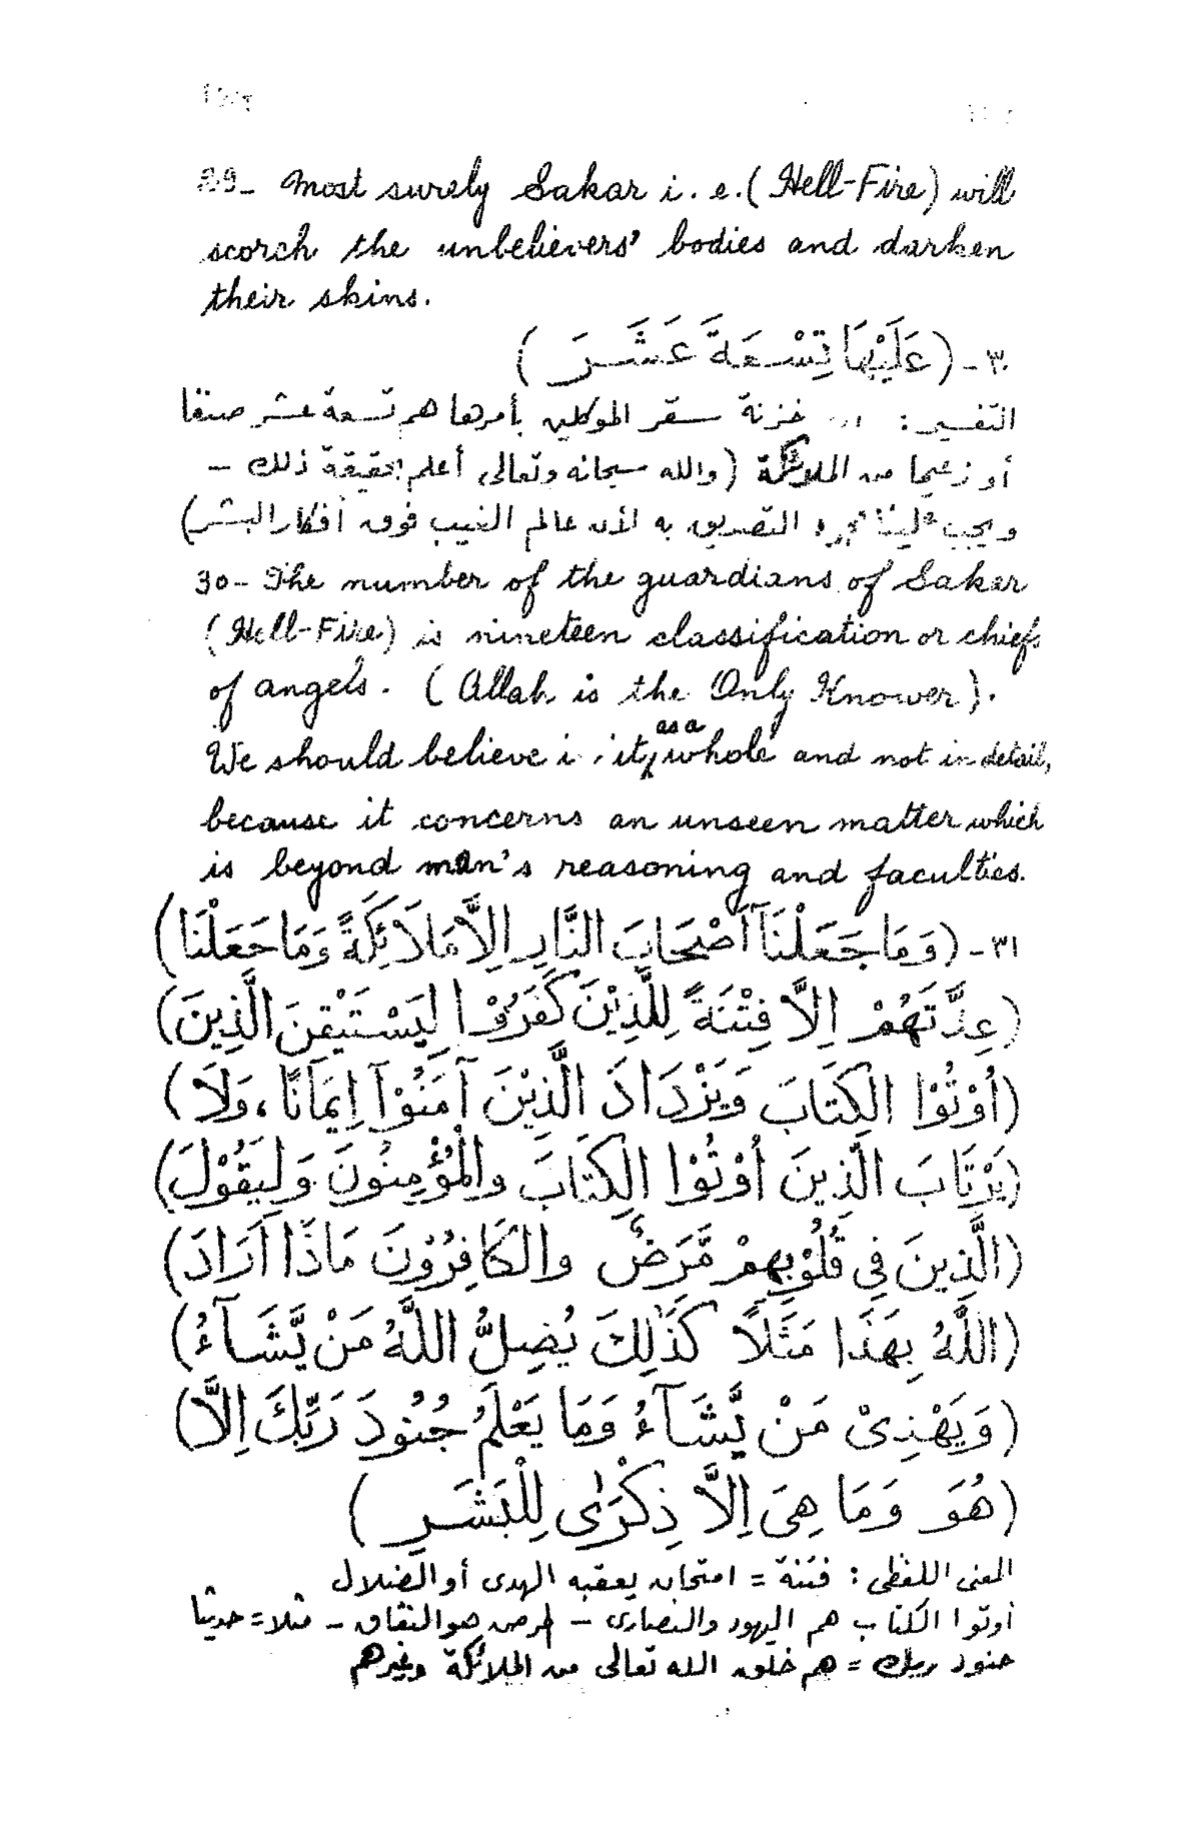 89- Most surely Sakar i. e. (Hell-Fire) will
scorch the unbelievers' bodies and darken
their skins.
٣٠ - (عَلَيْهَا تِسْعَةَ عَشَرَ)
التفسير: خزنة سقر الموكلين بأمرها هم تسعة عشر صنفا
أو زعيما من الملائكة (والله سبحانه وتعالى أعلم بحقيقة ذلك -
ويجب علينا التصديق به لأن عالم الغيب فوق أفكار البشر)
30- The number of the guardians of Sakar
(Hell-Fire) is nineteen classification or chiefs
of angels. (Allah is the Only Knower).
We should believe it as a whole and not in detail,
because it concerns an unseen matter which
is beyond man's reasoning and faculties.
٣١ - (وَمَا جَعَلْنَآ أَصْحَابَ النَّارِ إِلاَّ مَلاَئِكَةً وَمَا جَعَلْنَا)
(عِدَّتَهُمْ إِلاَّ فِتْنَةً لِلَّذِيْنَ كَفَرُوْا لِيَسْتَيْقِنَ الَّذِينَ)
(أُوْتُوْا الكِتَابَ وَيَزْدَادَ الَّذِيْنَ آمَنُوْآ إِيمَانًا، وَلاَ)
(يَرْتَابَ الَّذِينَ أُوْتُوْا الكِتَابَ والْمُؤْمِنُونَ وَلِيَقُوْلَ)
(الَّذِينَ فِي قُلُوْبِهِمْ مَّرَضٌ والكَافِرُوْنَ مَاذَا أَرَادَ)
(اللَّهُ بِهَذَا مَثَلاً كَذَٰلِكَ يُضِلُّ اللَّهُ مَنْ يَّشَآءُ)
(وَيَهْدِىْ مَنْ يَّشَآءُ وَمَا يَعْلَمُ جُنُودَ رَبِّكَ إِلاَّ)
(هُوَ وَمَا هِىَ إِلاَّ ذِكْرَىٰ لِلْبَشَرِ)
المعنى اللفظى: فتنة = امتحان يعقبه الهدى أو الضلال
أوتوا الكتاب هم اليهود والنصارى - مرض هو النفاق - مثلا = حديثا
جنود ربك = هم خلق الله تعالى من الملائكة وغيرهم